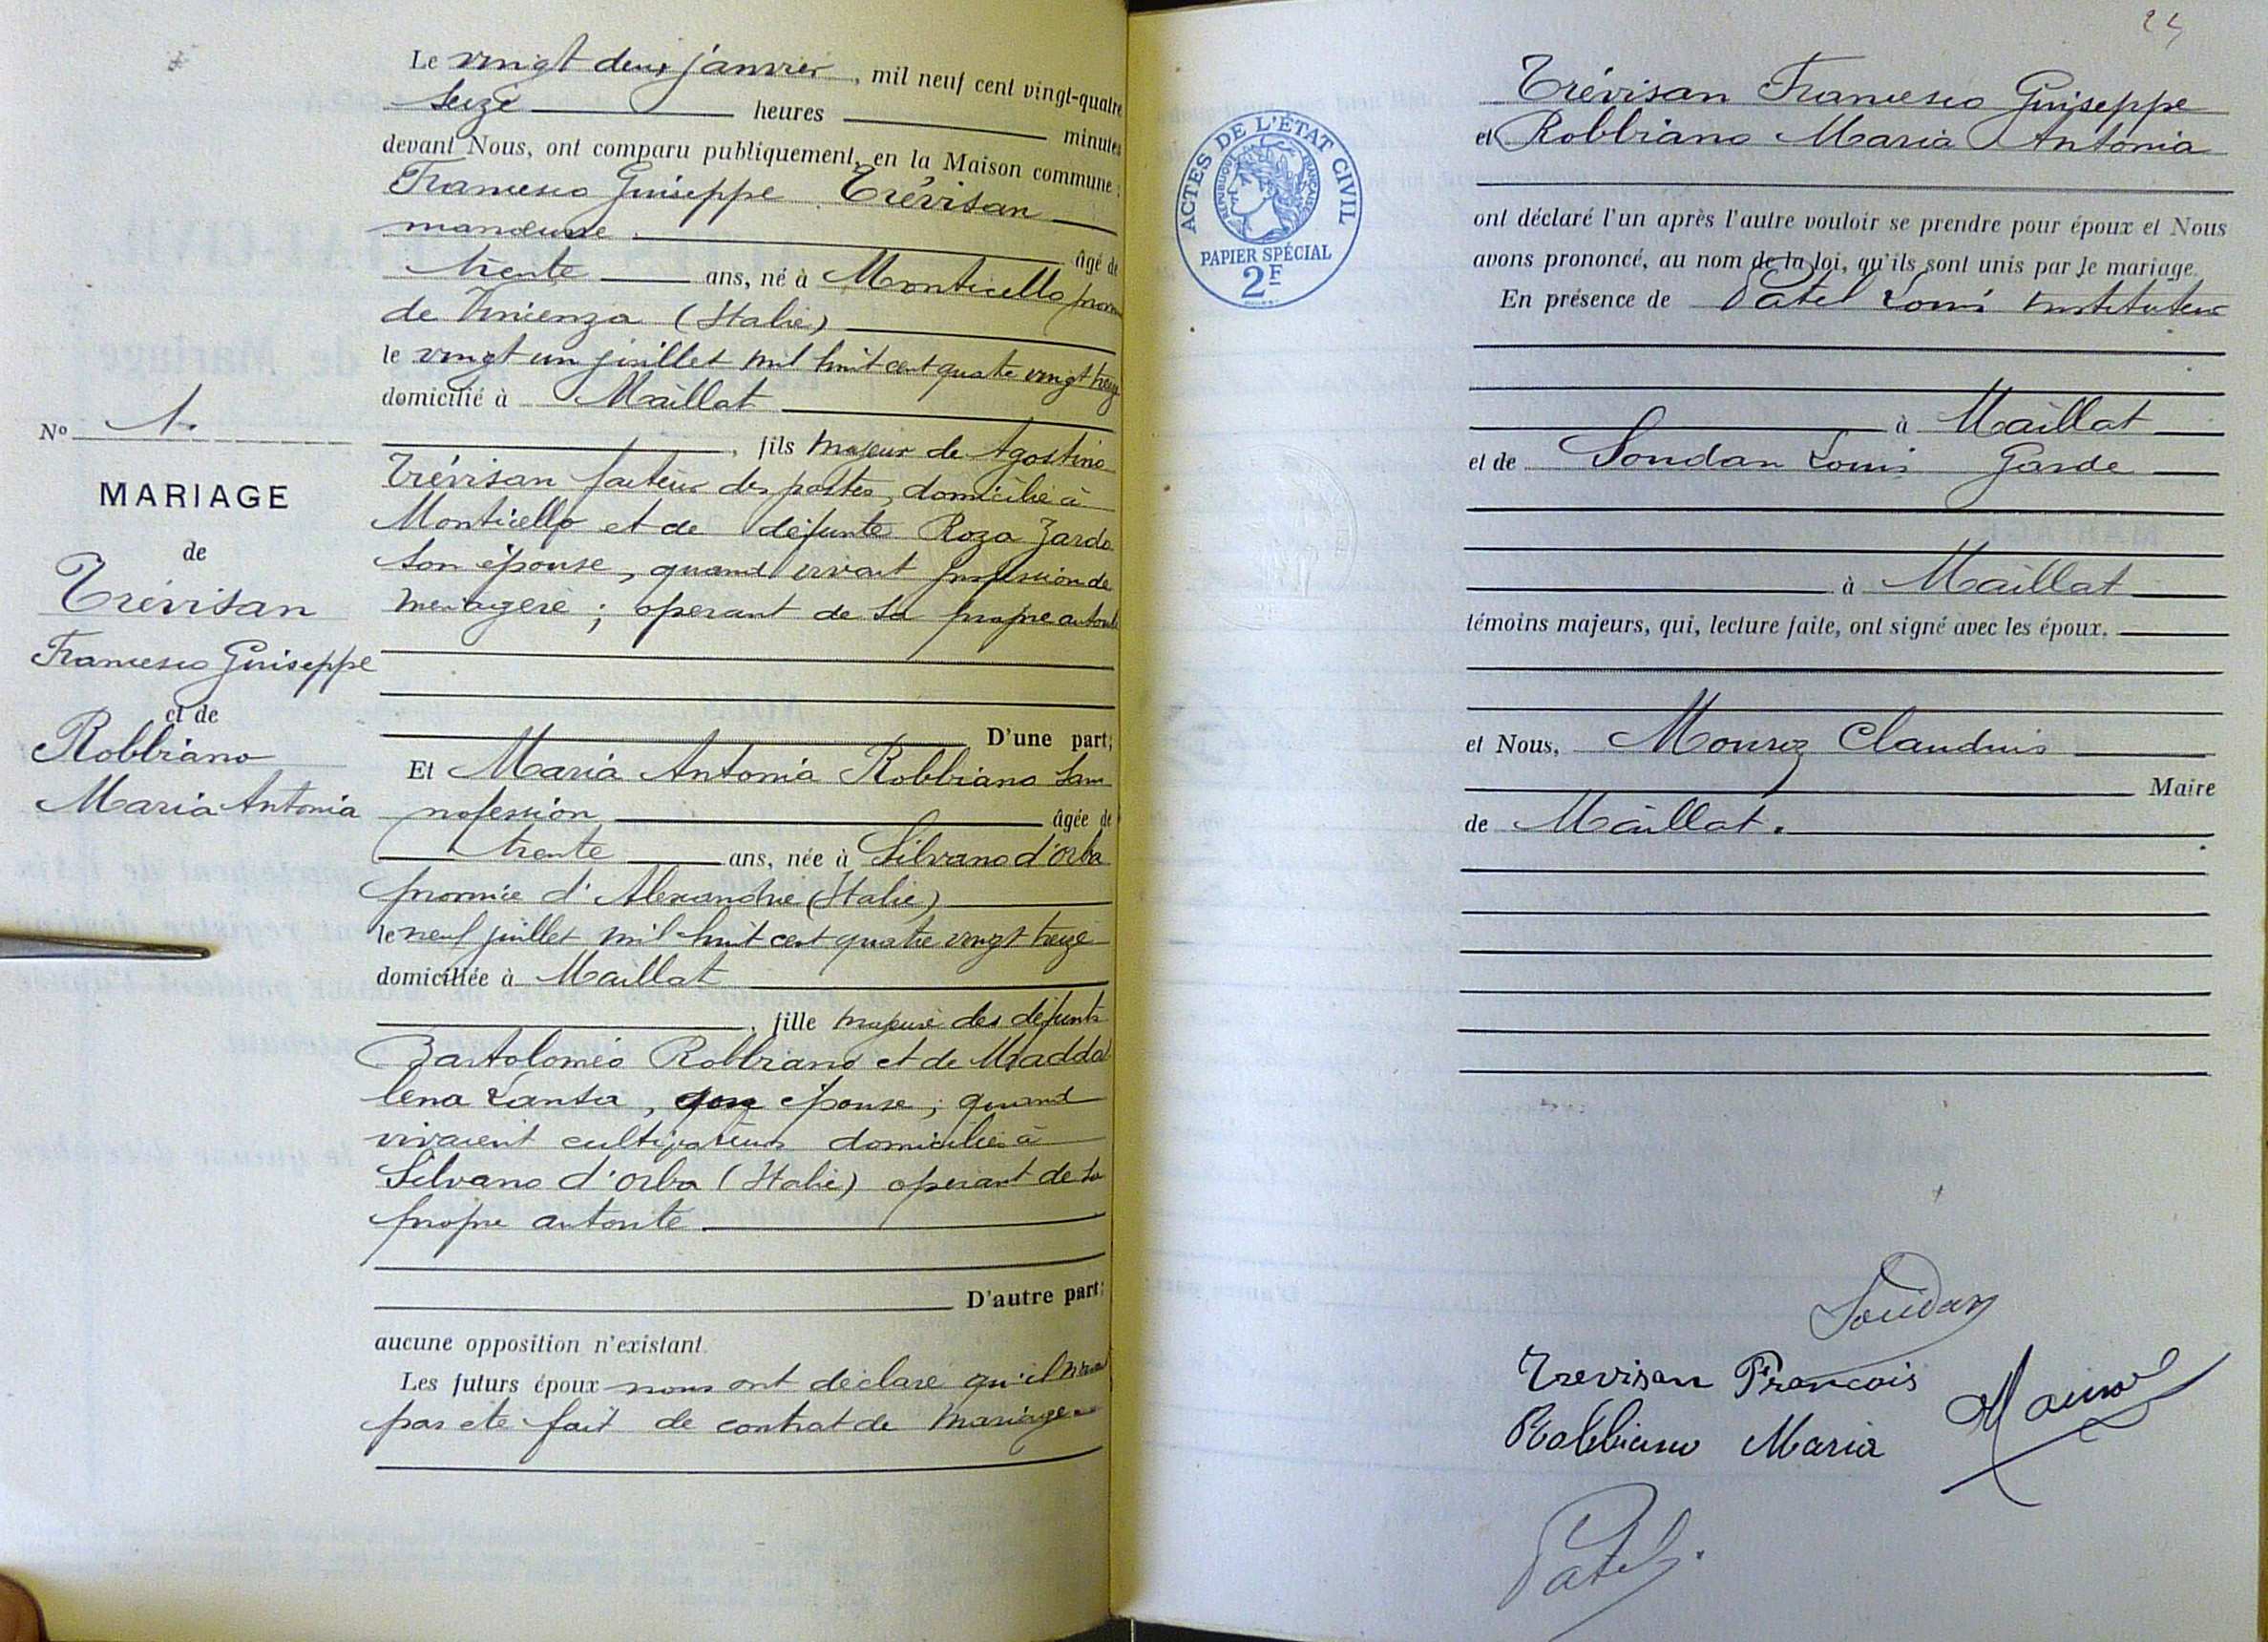 Le vingt deux janvier, mil neuf cent vingt-quatre
seize heures minutes
devant Nous, ont comparu publiquement, en la Maison commune :
Francesco Guiseppe Trévisan
manœuvre âgé de
trente ans, né à Monticello prov
de Vincenza (Italie)
le vingt un juillet mil huit cent quatre vingt treize
domicilié à Maillat
, fils majeur de Agostino
Trévisan facteur des postes, domicilié à
Monticello et de défunte Roza Zardo
son épouse, quand vivait profession de
ménagère ; opérant de sa propre autorité
D'une part;
Et Maria Antonia Robbiano sans
profession âgée de
trente ans, née à Silvano d'orba
province d'Alexandrie (Italie)
le neuf juillet mil huit cent quatre vingt treize
domiciliée à Maillat
, fille majeure des défunts
Bartoloméo Robbiano et de Madda
lena Lanza, son épouse, quand
vivaient cultivateurs domiciliés à
Silvano d'orba (Italie) opérant de sa
propre autorité
D'autre part;
aucune opposition n'existant.
Les futurs époux nous ont déclaré qu'il n'avait
pas été fait de contrat de mariage
No 1.
MARIAGE
de
Trévisan
Francesco Guiseppe
et de
Robbiano
Maria Antonia
24
ACTES DE L'ÉTAT CIVIL
RÉPUBLIQUE FRANÇAISE
PAPIER SPÉCIAL
2F
Trévisan Francesco Guiseppe
et Robbiano Maria Antonia
ont déclaré l'un après l'autre vouloir se prendre pour époux et Nous
avons prononcé, au nom de la loi, qu'ils sont unis par le mariage.
En présence de Patel Louis instituteur
à Maillat
et de Soudan Louis Garde
à Maillat
témoins majeurs, qui, lecture faite, ont signé avec les époux.
et Nous, Mouroz Claudius
Maire
de Maillat.
Soudan
Trevisan Francois
Robbiano Maria
Patel